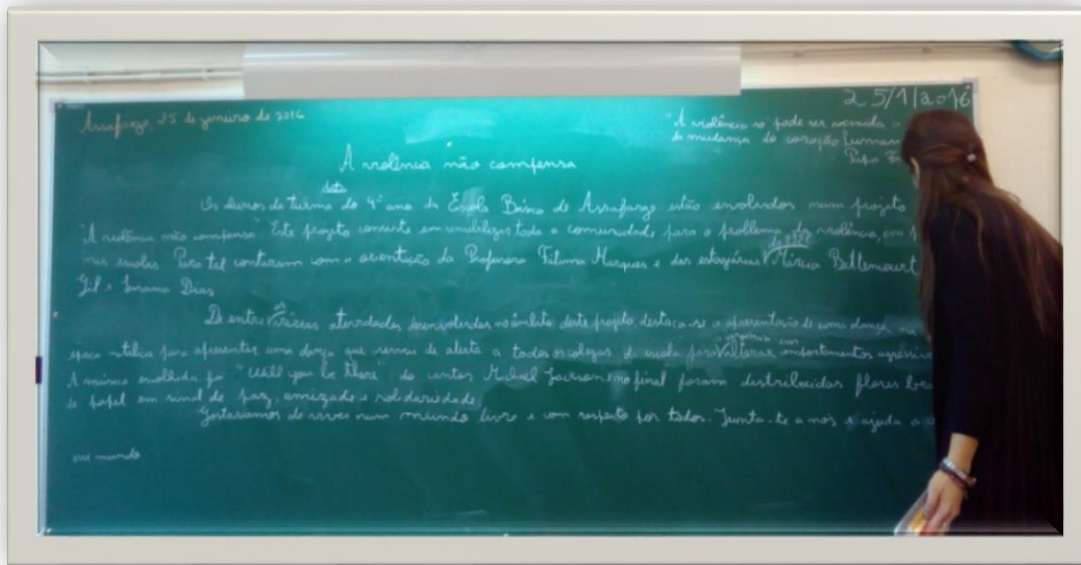 Assafarge, 25 de janeiro de 2016
25/1/2016
"A violência só pode ser vencida
da mudança do coração human
Papa
A violência não compensa
Os alunos da turma do 4º ano da Escola Básica de Assafarge estão envolvidos num projeto
"A violência não compensa" Este projeto consiste em sensibilizar toda a comunidade, para o problema da violência, em
nas escolas. Para tal contaram com a orientação da Professora Fátima Marques e das estagiárias Márcia Bettencourt
Gil e Susana Dias
De entre várias atividades desenvolvidas no âmbito deste projeto, destaca-se a apresentação de uma dança
para apresentar uma dança que serviu de alerta a todos os colegas da escola para comportamentos
A música escolhida foi "Will you be there" do cantor Michael Jackson e no final foram distribuídas flores
de papel em sinal de paz, amizade e solidariedade.
Gostaríamos de viver num mundo livre e com respeito por todos. Junta-te a nós e ajuda a
esse mundo